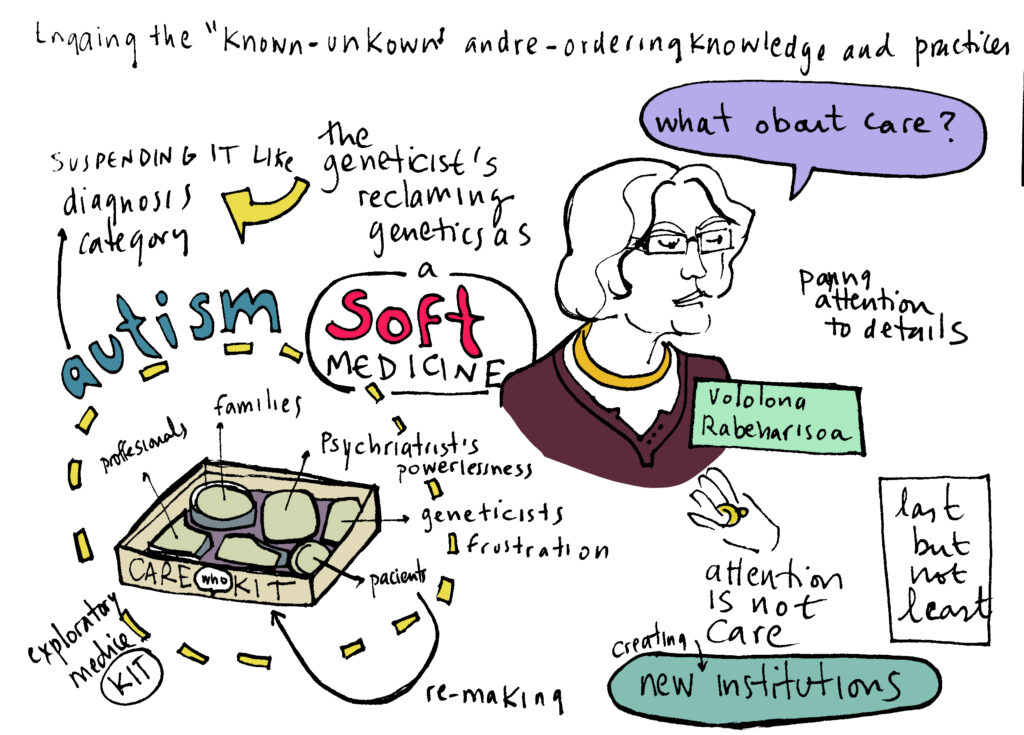 Engaing the "Known-unkown" and re-ordering knowledge and practices
what about care?
SUSPENDING IT LIKE
diagnosis
category
the
geneticist's
reclaming
genetics as
a
soft
MEDICINE
autism
paying
attention
to details
Vololona
Rabeharisoa
families
proffesionals
Psychriatrist's
powerlessness
geneticists
frustration
pacients
CARE who KIT
exploratory
medice
KIT
re-making
attention
IS not
care
creating
new institutions
last
but
not
least